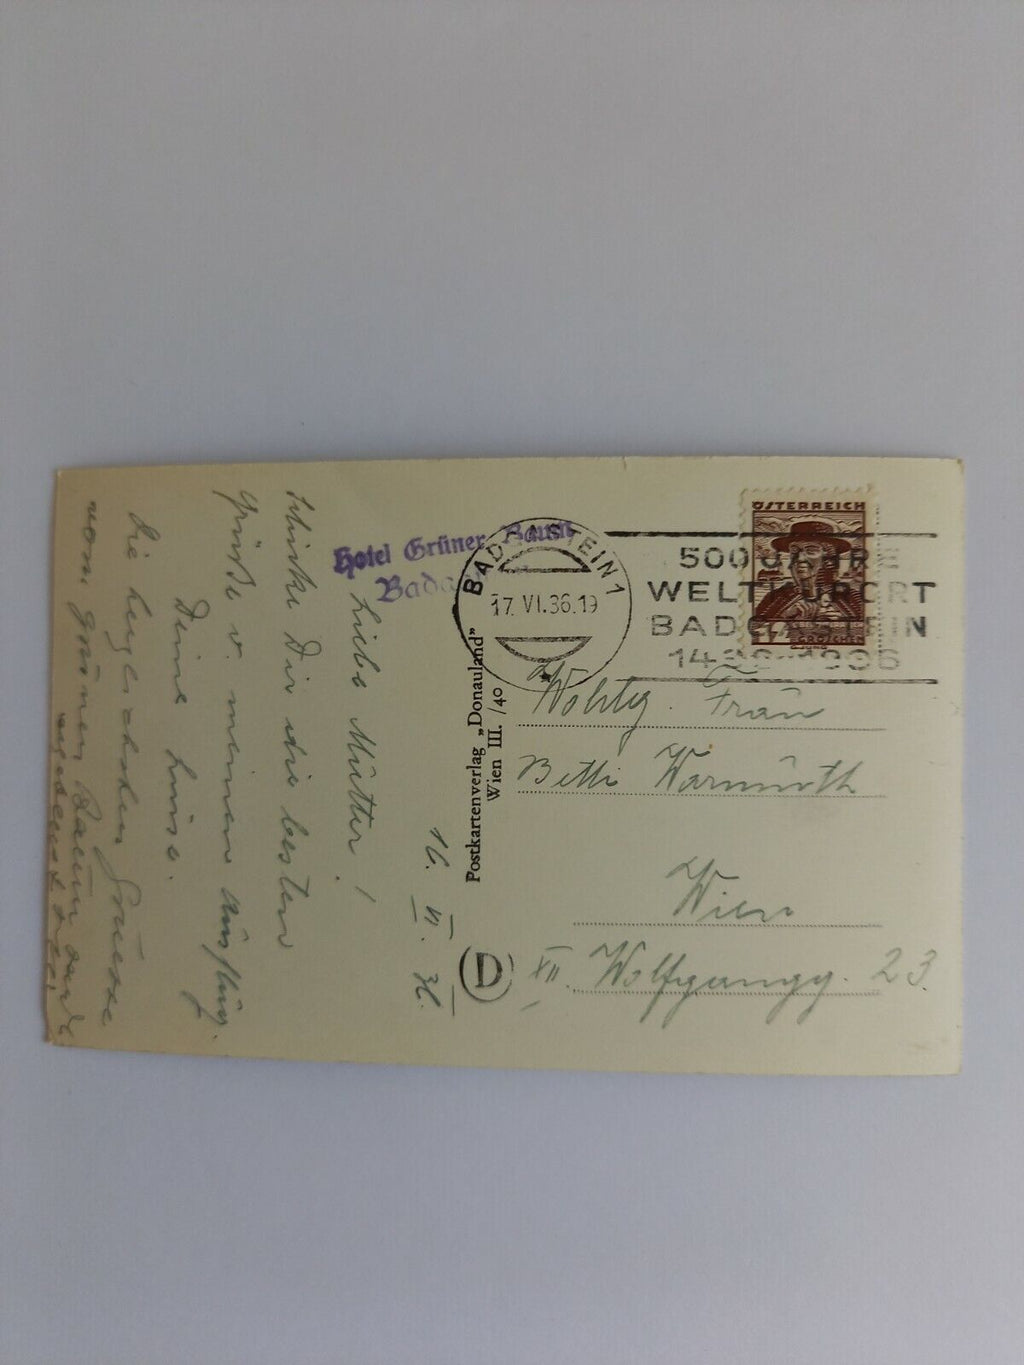 16. VI. 36.
Liebe Mutter!
Schicke Dir die besten
Grüße v. meinem Ausflug.
Deine Luise.
Die herzlichsten Grüsse
vom grünen Baum
Hotel Grüner Baum
Badgastein
Postkartenverlag „Donauland"
Wien III. /40
D
BADGASTEIN 1
17. VI. 36. 19
500 JAHRE
WELTKURORT
BADGASTEIN
1436-1936
ÖSTERREICH
GROSCHEN
Wohlg. Frau
Betti Warmuth
Wien
XII. Wolfgangg. 23.